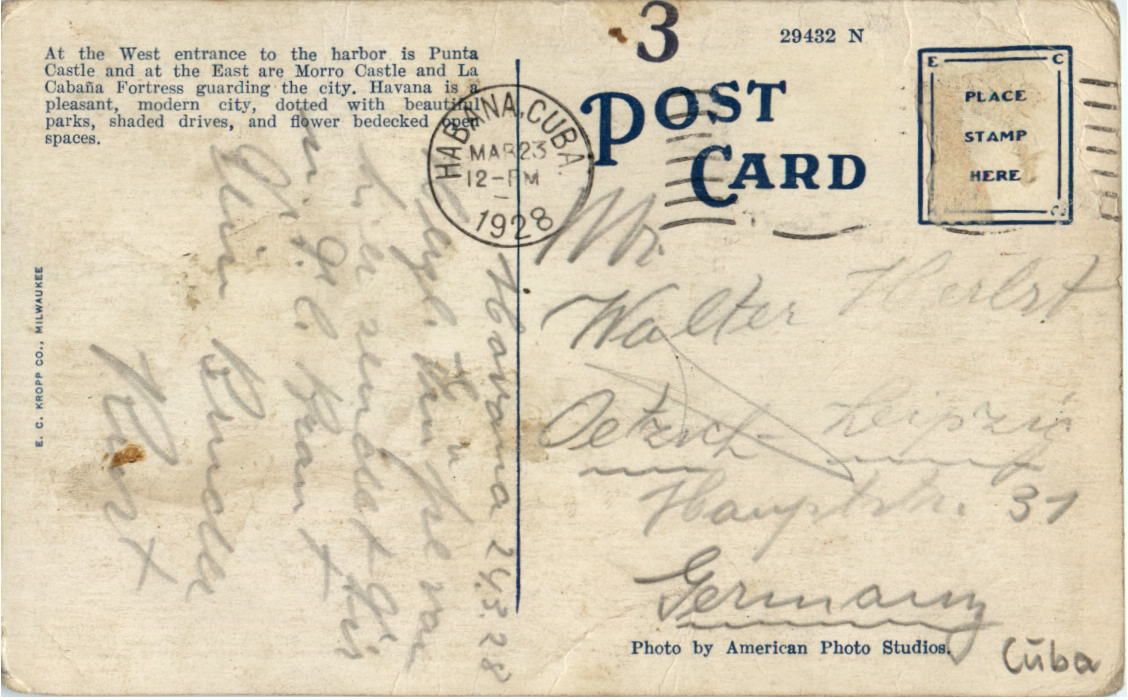 3
29432 N
At the West entrance to the harbor is Punta
Castle and at the East are Morro Castle and La
Cabaña Fortress guarding the city. Havana is a
pleasant, modern city, dotted with beautiful
parks, shaded drives, and flower bedecked open
spaces.
HABANA, CUBA.
MAR 23
12-PM
1928
POST
CARD
E C
PLACE
STAMP
HERE
E. C. KROPP CO., MILWAUKEE
Havanna 23.3.28
Herzl. Grüße von
hier sendet Dir
u. Frl. Braut
Dein Bruder
Kurt
Mr.
Walter Herbst
Oetzsch-Leipzig
Hauptstr. 31
Germany
Photo by American Photo Studios.
Cuba